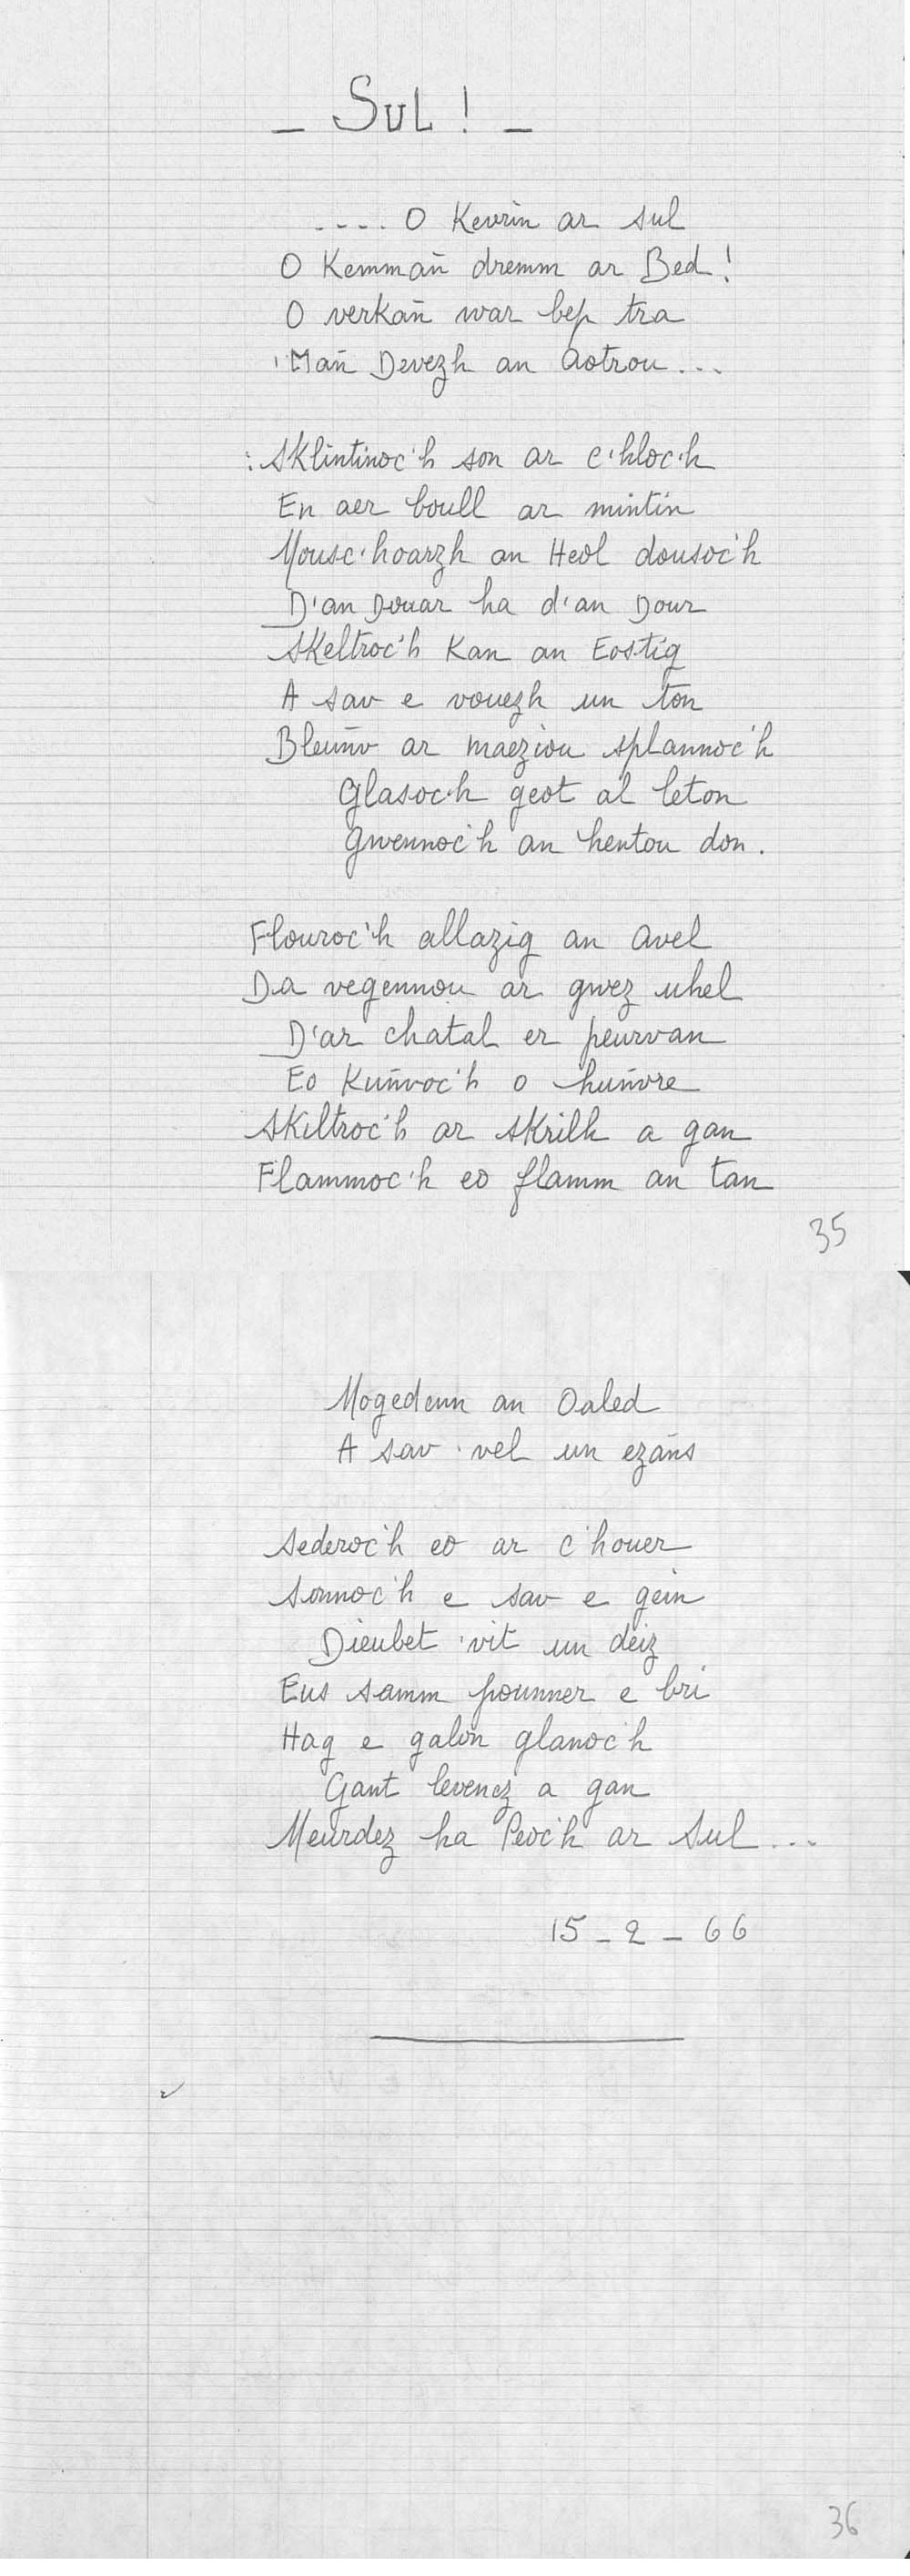 - SUL ! -
.... O Kevrin ar sul
O Kemmañ dremm ar Bed !
O verkañ war bep tra
'Mañ Devezh an Aotrou ...
: Sklintinoc'h son ar c'hloc'h
En aer boull ar mintin
Mousc'hoarzh an Heol dousoc'h
D'an Douar ha d'an Dour
Skeltroc'h Kan an Eostig
A sav e vouezh un ton
Bleunv ar maeziou splannoc'h
Glasoc'h geot al leton
Gwennoc'h an hentou don.
Flouroc'h allazig an avel
Da vegennou ar gwez uhel
D'ar chatal er peurvan
Eo Kuñvoc'h o huñvre
Skiltroc'h ar skrilh a gan
Flammoc'h eo flamm an tan
35
Mogedenn an Oaled
A sav 'vel un ezañs
Sederoc'h eo ar c'houer
Sonnoc'h e sav e gein
Dieubet 'vit un deiz
Eus samm pounner e bri
Hag e galon glanoc'h
Gant levenez a gan
Meurdez ha Peoc'h ar Sul ...
15 - 2 - 66
36